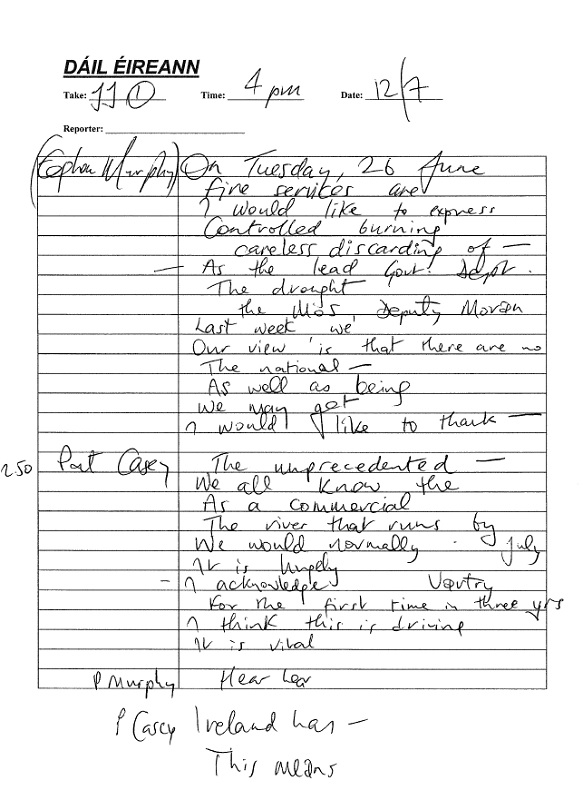 DÁIL ÉIREANN
Take: JJ 1 Time: 4 pm Date: 12/7
Reporter:
(Eoghan Murphy) On Tuesday, 26 June
fire services are
I would like to express
Controlled burning
careless discarding of —
— As the lead Govt. Dept.
The drought
the MoS, Deputy Moran
Last week we
Our view is that there are no
The national —
As well as being
We may get
I would like to thank —
250 Pat Casey The unprecedented —
We all know the
As a commercial
The river that runs by
We would normally . July
It is hugely
– I acknowledge Vartry
For the first time in three yrs
I think this is driving
It is vital
P Murphy Hear hear
P Casey Ireland has —
This means